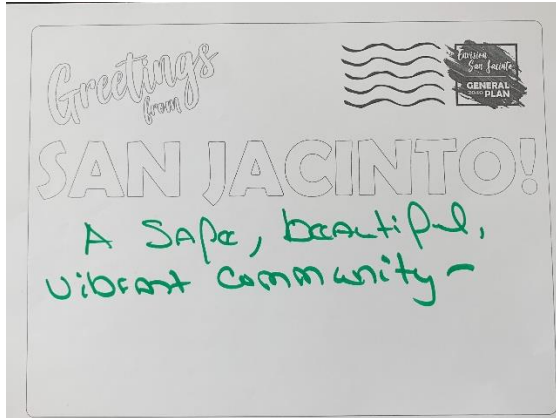 Greetings
from
Envision
San Jacinto
GENERAL
2040 PLAN
SAN JACINTO!
A SAfe, beautiful,
vibrant community-